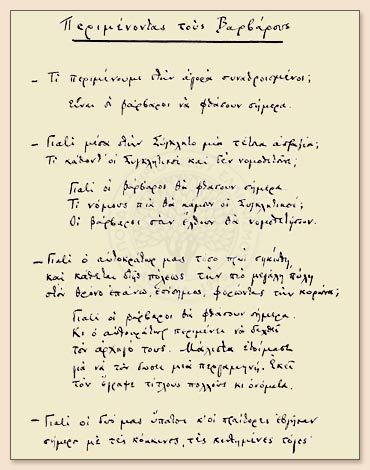 Περιμένοντας τοὺς Βαρβάρους
— Τί περιμένουμε στὴν ἀγορὰ συναθροισμένοι;
Εἶναι οἱ βάρβαροι νὰ φθάσουν σήμερα.
— Γιατί μέσα στὴν Σύγκλητο μιὰ τέτοια ἀπραξία;
Τί κάθοντ' οἱ Συγκλητικοὶ καὶ δὲν νομοθετοῦνε;
Γιατί οἱ βάρβαροι θὰ φθάσουν σήμερα.
Τί νόμους πιὰ θὰ κάμουν οἱ Συγκλητικοί;
Οἱ βάρβαροι σὰν ἔλθουν θὰ νομοθετήσουν.
— Γιατί ὁ αὐτοκράτωρ μας τόσο πρωὶ σηκώθη,
καὶ κάθεται στῆς πόλεως τὴν πιὸ μεγάλη πύλη
στὸν θρόνο ἐπάνω, ἐπίσημος, φορώντας τὴν κορώνα;
Γιατί οἱ βάρβαροι θὰ φθάσουν σήμερα.
Κι ὁ αὐτοκράτωρ περιμένει νὰ δεχθεῖ
τὸν ἀρχηγό τους. Μάλιστα ἑτοίμασε
γιὰ νὰ τὸν δώσει μιὰ περγαμηνή. Ἐκεῖ
τὸν ἔγραψε τίτλους πολλοὺς κι ὀνόματα.
— Γιατί οἱ δυό μας ὕπατοι κ' οἱ πραίτορες ἐβγῆκαν
σήμερα μὲ τὲς κόκκινες, τὲς κεντημένες τόγες·